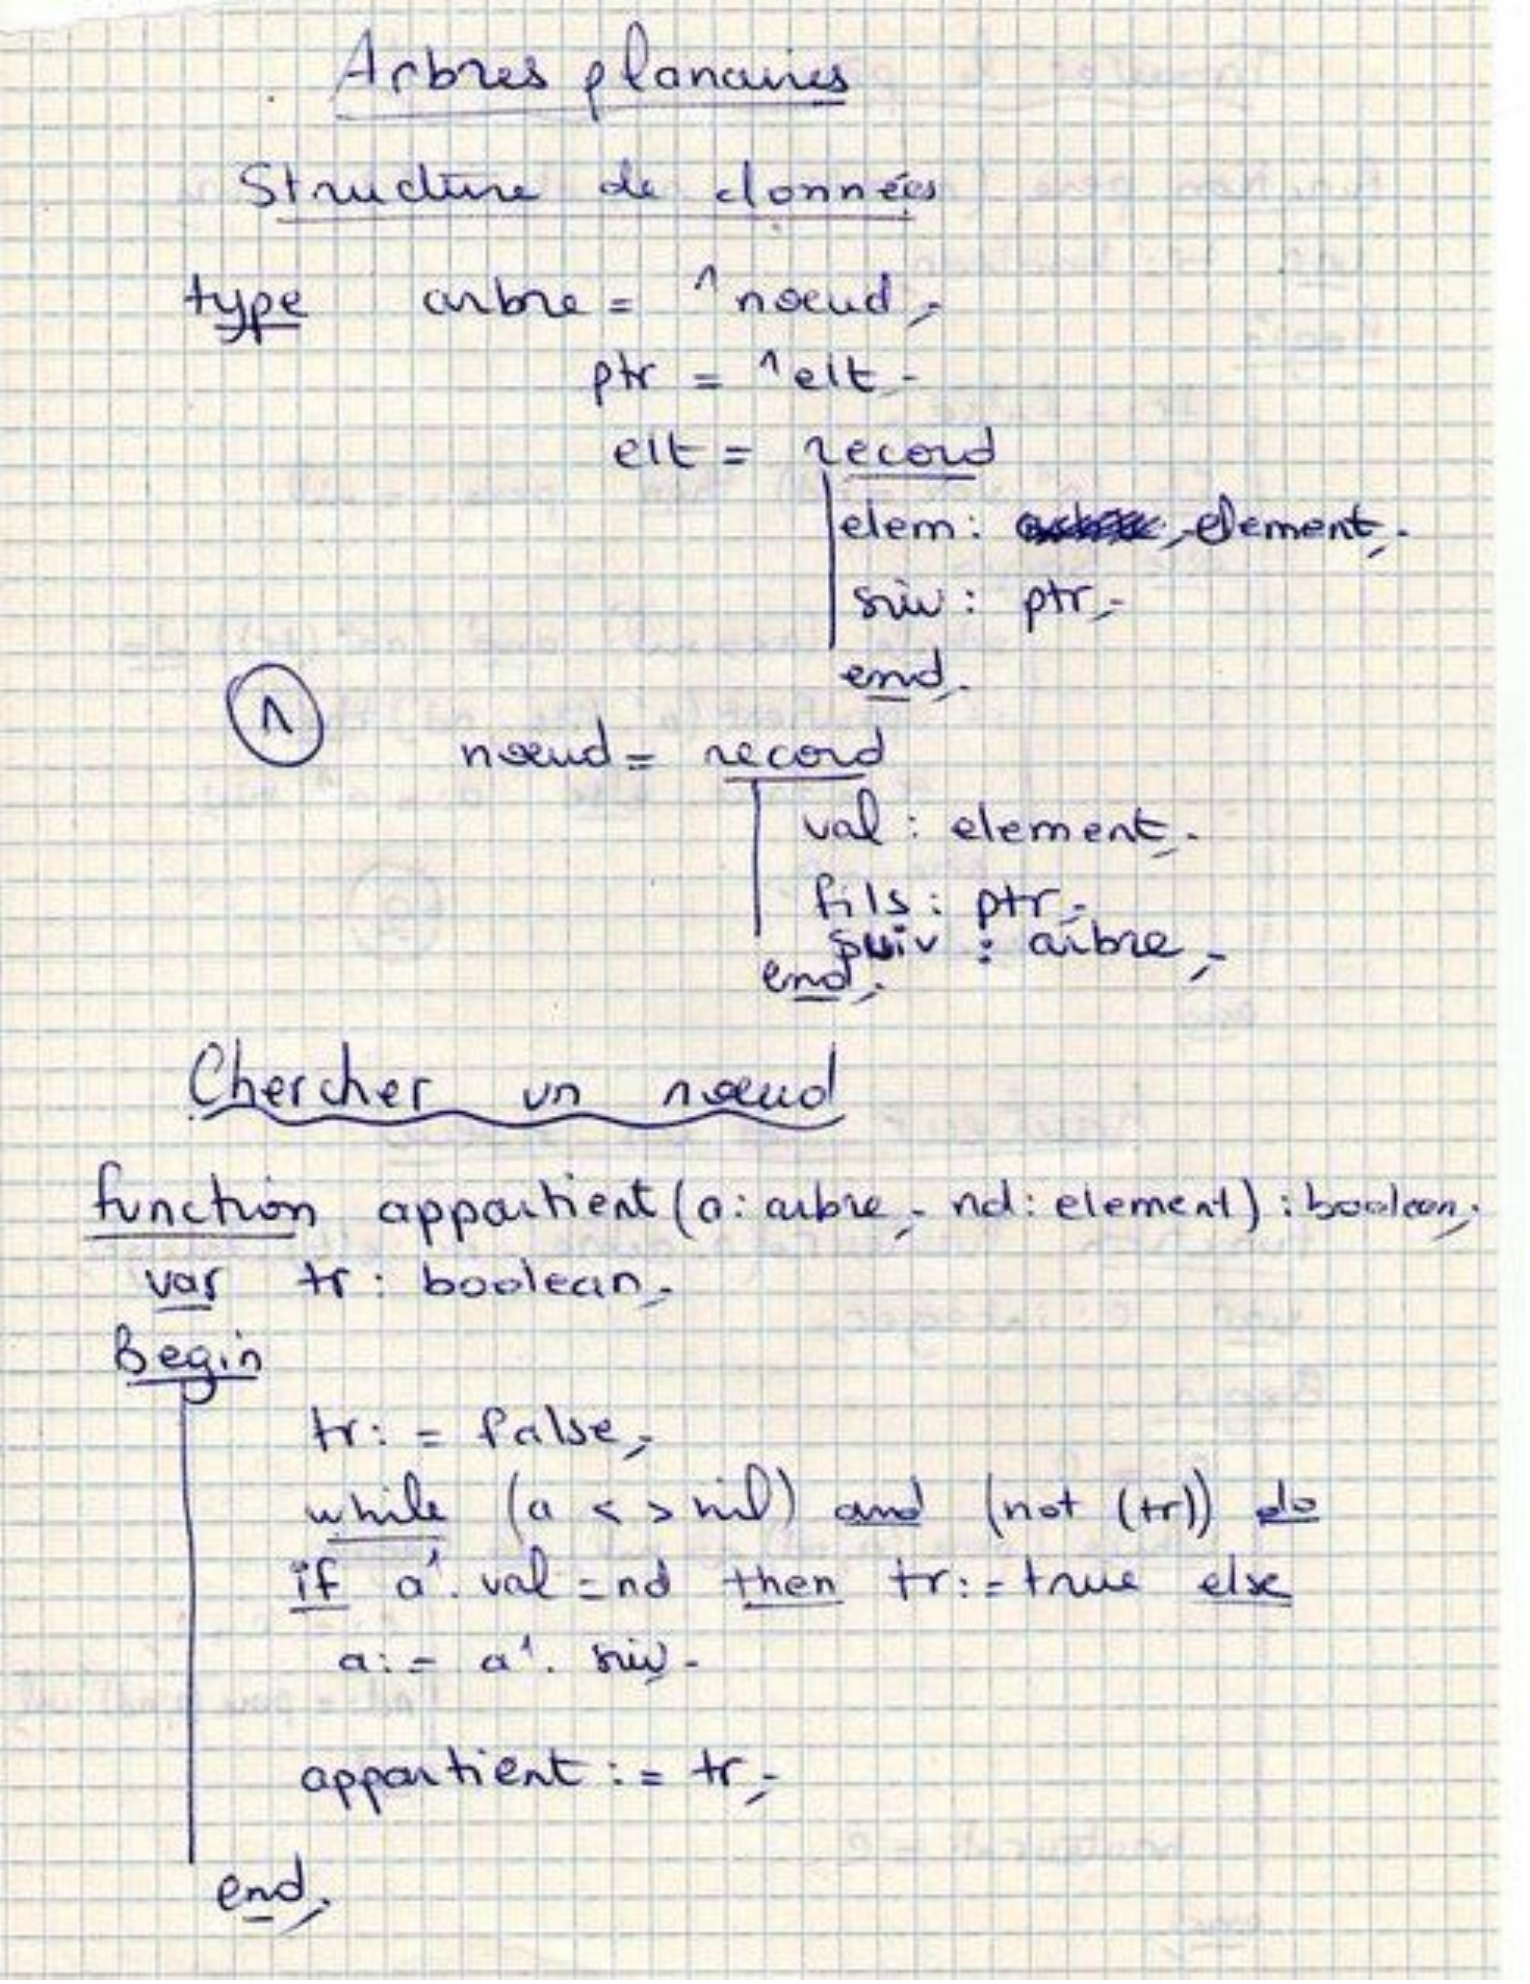 Arbres planaires
Structure de données
type arbre = ^noeud;
ptr = ^elt;
elt = record
elem: element;
suiv: ptr;
end;
1
noeud = record
val: element;
fils: ptr;
suiv: arbre;
end;
Chercher un noeud
function appartient (a: arbre; nd: element): boolean;
var tr: boolean;
Begin
tr:= false;
while (a <> nil) and (not (tr)) do
if a^.val = nd then tr:= true else
a:= a^.suiv.
appartient:= tr;
end;